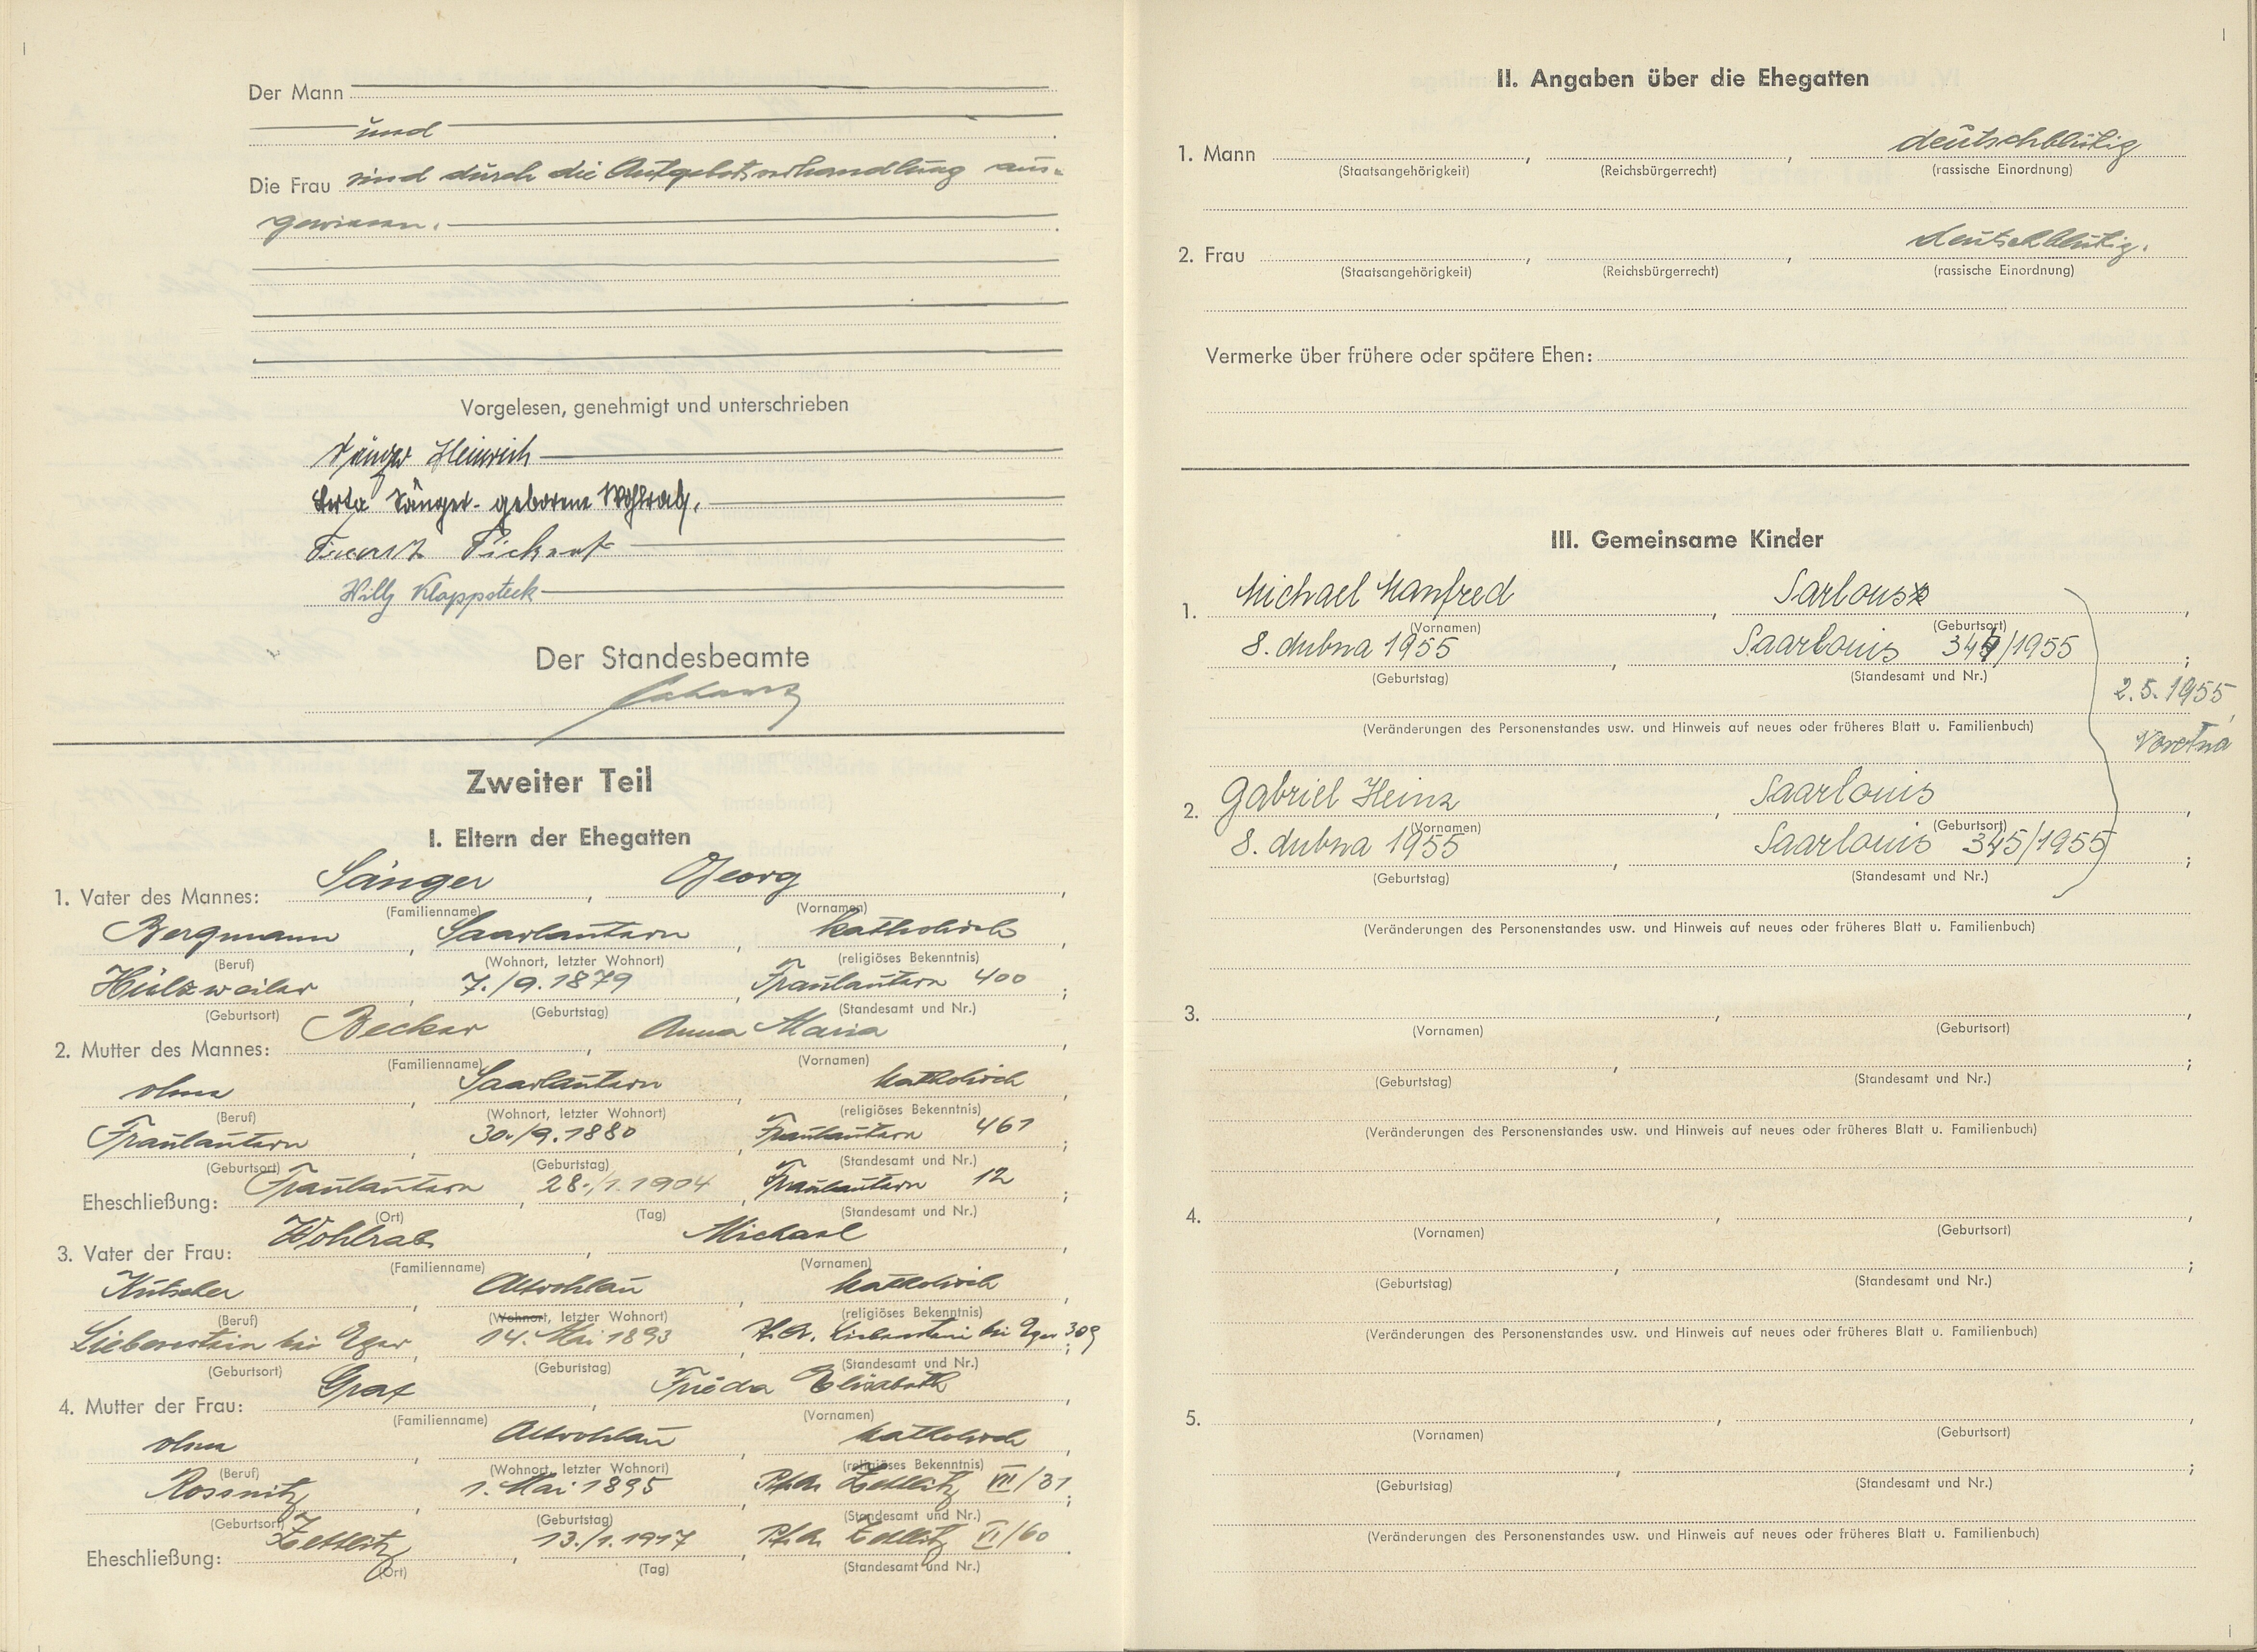 Der Mann
und
Die Frau sind durch die Aufgebotsverhandlung aus-
gewiesen.
Vorgelesen, genehmigt und unterschrieben
Sänger Heinrich
Herta Sänger geborene Wohlrab.
Willy Kloppsteck
Der Standesbeamte
Zweiter Teil
I. Eltern der Ehegatten
1. Vater des Mannes: Sänger, Georg,
(Familienname) (Vornamen)
Bergmann, Saarlautern, katholisch,
(Beruf) (Wohnort, letzter Wohnort) (religiöses Bekenntnis)
Hülzweiler, 7./9.1879, Fraulautern 400;
(Geburtsort) (Geburtstag) (Standesamt und Nr.)
2. Mutter des Mannes: Becker, Anna Maria,
(Familienname) (Vornamen)
ohne, Saarlautern, katholisch,
(Beruf) (Wohnort, letzter Wohnort) (religiöses Bekenntnis)
Fraulautern, 30./9.1880, Fraulautern 461;
(Geburtsort) (Geburtstag) (Standesamt und Nr.)
Eheschließung: Fraulautern, 28./1.1904, Fraulautern 12;
(Ort) (Tag) (Standesamt und Nr.)
3. Vater der Frau: Wohlrab, Michael,
(Familienname) (Vornamen)
Kutscher, Altrohlau, katholisch,
(Beruf) (Wohnort, letzter Wohnort) (religiöses Bekenntnis)
Liebenstein bei Eger, 14. Mai 1893, Liebenstein bei Eger 309;
(Geburtsort) (Geburtstag) (Standesamt und Nr.)
4. Mutter der Frau: Graf, Frieda Elisabeth,
(Familienname) (Vornamen)
ohne, Altrohlau, katholisch,
(Beruf) (Wohnort, letzter Wohnort) (religiöses Bekenntnis)
Rossnitz, 1. Mai 1895, Pfda. Zettlitz VII/31;
(Geburtsort) (Geburtstag) (Standesamt und Nr.)
Eheschließung: Zettlitz, 13./1.1917, Pfda. Zettlitz VI/60.
(Ort) (Tag) (Standesamt und Nr.)
II. Angaben über die Ehegatten
1. Mann, , deutschblütig
(Staatsangehörigkeit) (Reichsbürgerrecht) (rassische Einordnung)
2. Frau, , deutschblütig.
(Staatsangehörigkeit) (Reichsbürgerrecht) (rassische Einordnung)
Vermerke über frühere oder spätere Ehen:
III. Gemeinsame Kinder
1. Michael Manfred, Sarlous,
(Vornamen) (Geburtsort)
8. dubna 1955, Saarlouis 344/1955;
(Geburtstag) (Standesamt und Nr.)
2.5.1955
(Veränderungen des Personenstandes usw. und Hinweis auf neues oder früheres Blatt u. Familienbuch)
2. Gabriel Heinz, Saarlouis,
(Vornamen) (Geburtsort)
8. dubna 1955, Saarlouis 345/1955;
(Geburtstag) (Standesamt und Nr.)
(Veränderungen des Personenstandes usw. und Hinweis auf neues oder früheres Blatt u. Familienbuch)
3. , ,
(Vornamen) (Geburtsort)
, ;
(Geburtstag) (Standesamt und Nr.)
(Veränderungen des Personenstandes usw. und Hinweis auf neues oder früheres Blatt u. Familienbuch)
4. , ,
(Vornamen) (Geburtsort)
, ;
(Geburtstag) (Standesamt und Nr.)
(Veränderungen des Personenstandes usw. und Hinweis auf neues oder früheres Blatt u. Familienbuch)
5. , ,
(Vornamen) (Geburtsort)
, ;
(Geburtstag) (Standesamt und Nr.)
(Veränderungen des Personenstandes usw. und Hinweis auf neues oder früheres Blatt u. Familienbuch)